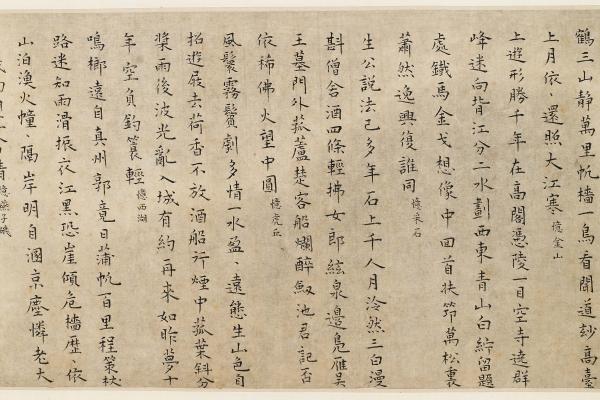 鶴三山靜萬里帆檣一鳥看聞道妙高臺
上月依〻還照大江寒 憶金山
上遊形勝千年在高閣憑陵一目空寺遶群
峰迷向背江分二水劃西東青山白紵留題
處鐵馬金戈想像中回首扶笻萬松裏
蕭然逸興復誰同 憶采石
生公說法已多年石上千人月泠然三白漫
斟僧舍酒四條輕拂女郎絃泉邊鳧雁吳
王墓門外菰蘆楚客船爛醉劔池君記否
依稀佛火望中圓 憶虎丘
風鬟霧鬢劇多情一水盈〻遠態生山色自
招遊屐去荷香不放酒船行煙中菰葉斜分
槳雨後波光亂入城有約再來如昨夢十
年空負釣簑輕 憶西湖
鳴榔遠自真州郭竟日蒲帆百里程策杖
路迷知雨滑振衣江黑恐崖傾危檣歷〻依
山泊漁火幢〻隔岸明自溷京塵憐老大
憶燕子磯